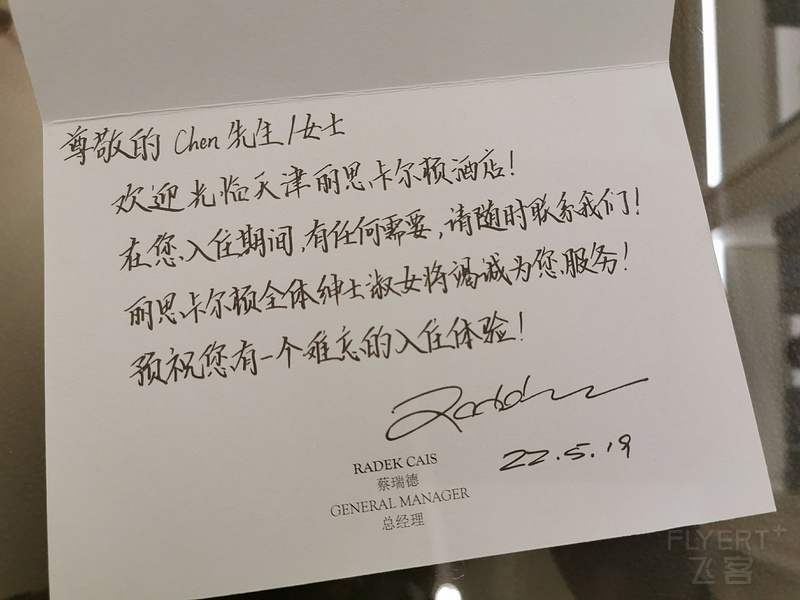 尊敬的 Chen 先生/女士
欢迎光临天津丽思卡尔顿酒店!
在您入住期间,有任何需要,请随时联系我们!
丽思卡尔顿全体绅士淑女将竭诚为您服务!
预祝您有一个难忘的入住体验!
22.5.19
RADEK CAIS
蔡瑞德
GENERAL MANAGER
总经理
FLYERT+
飞客